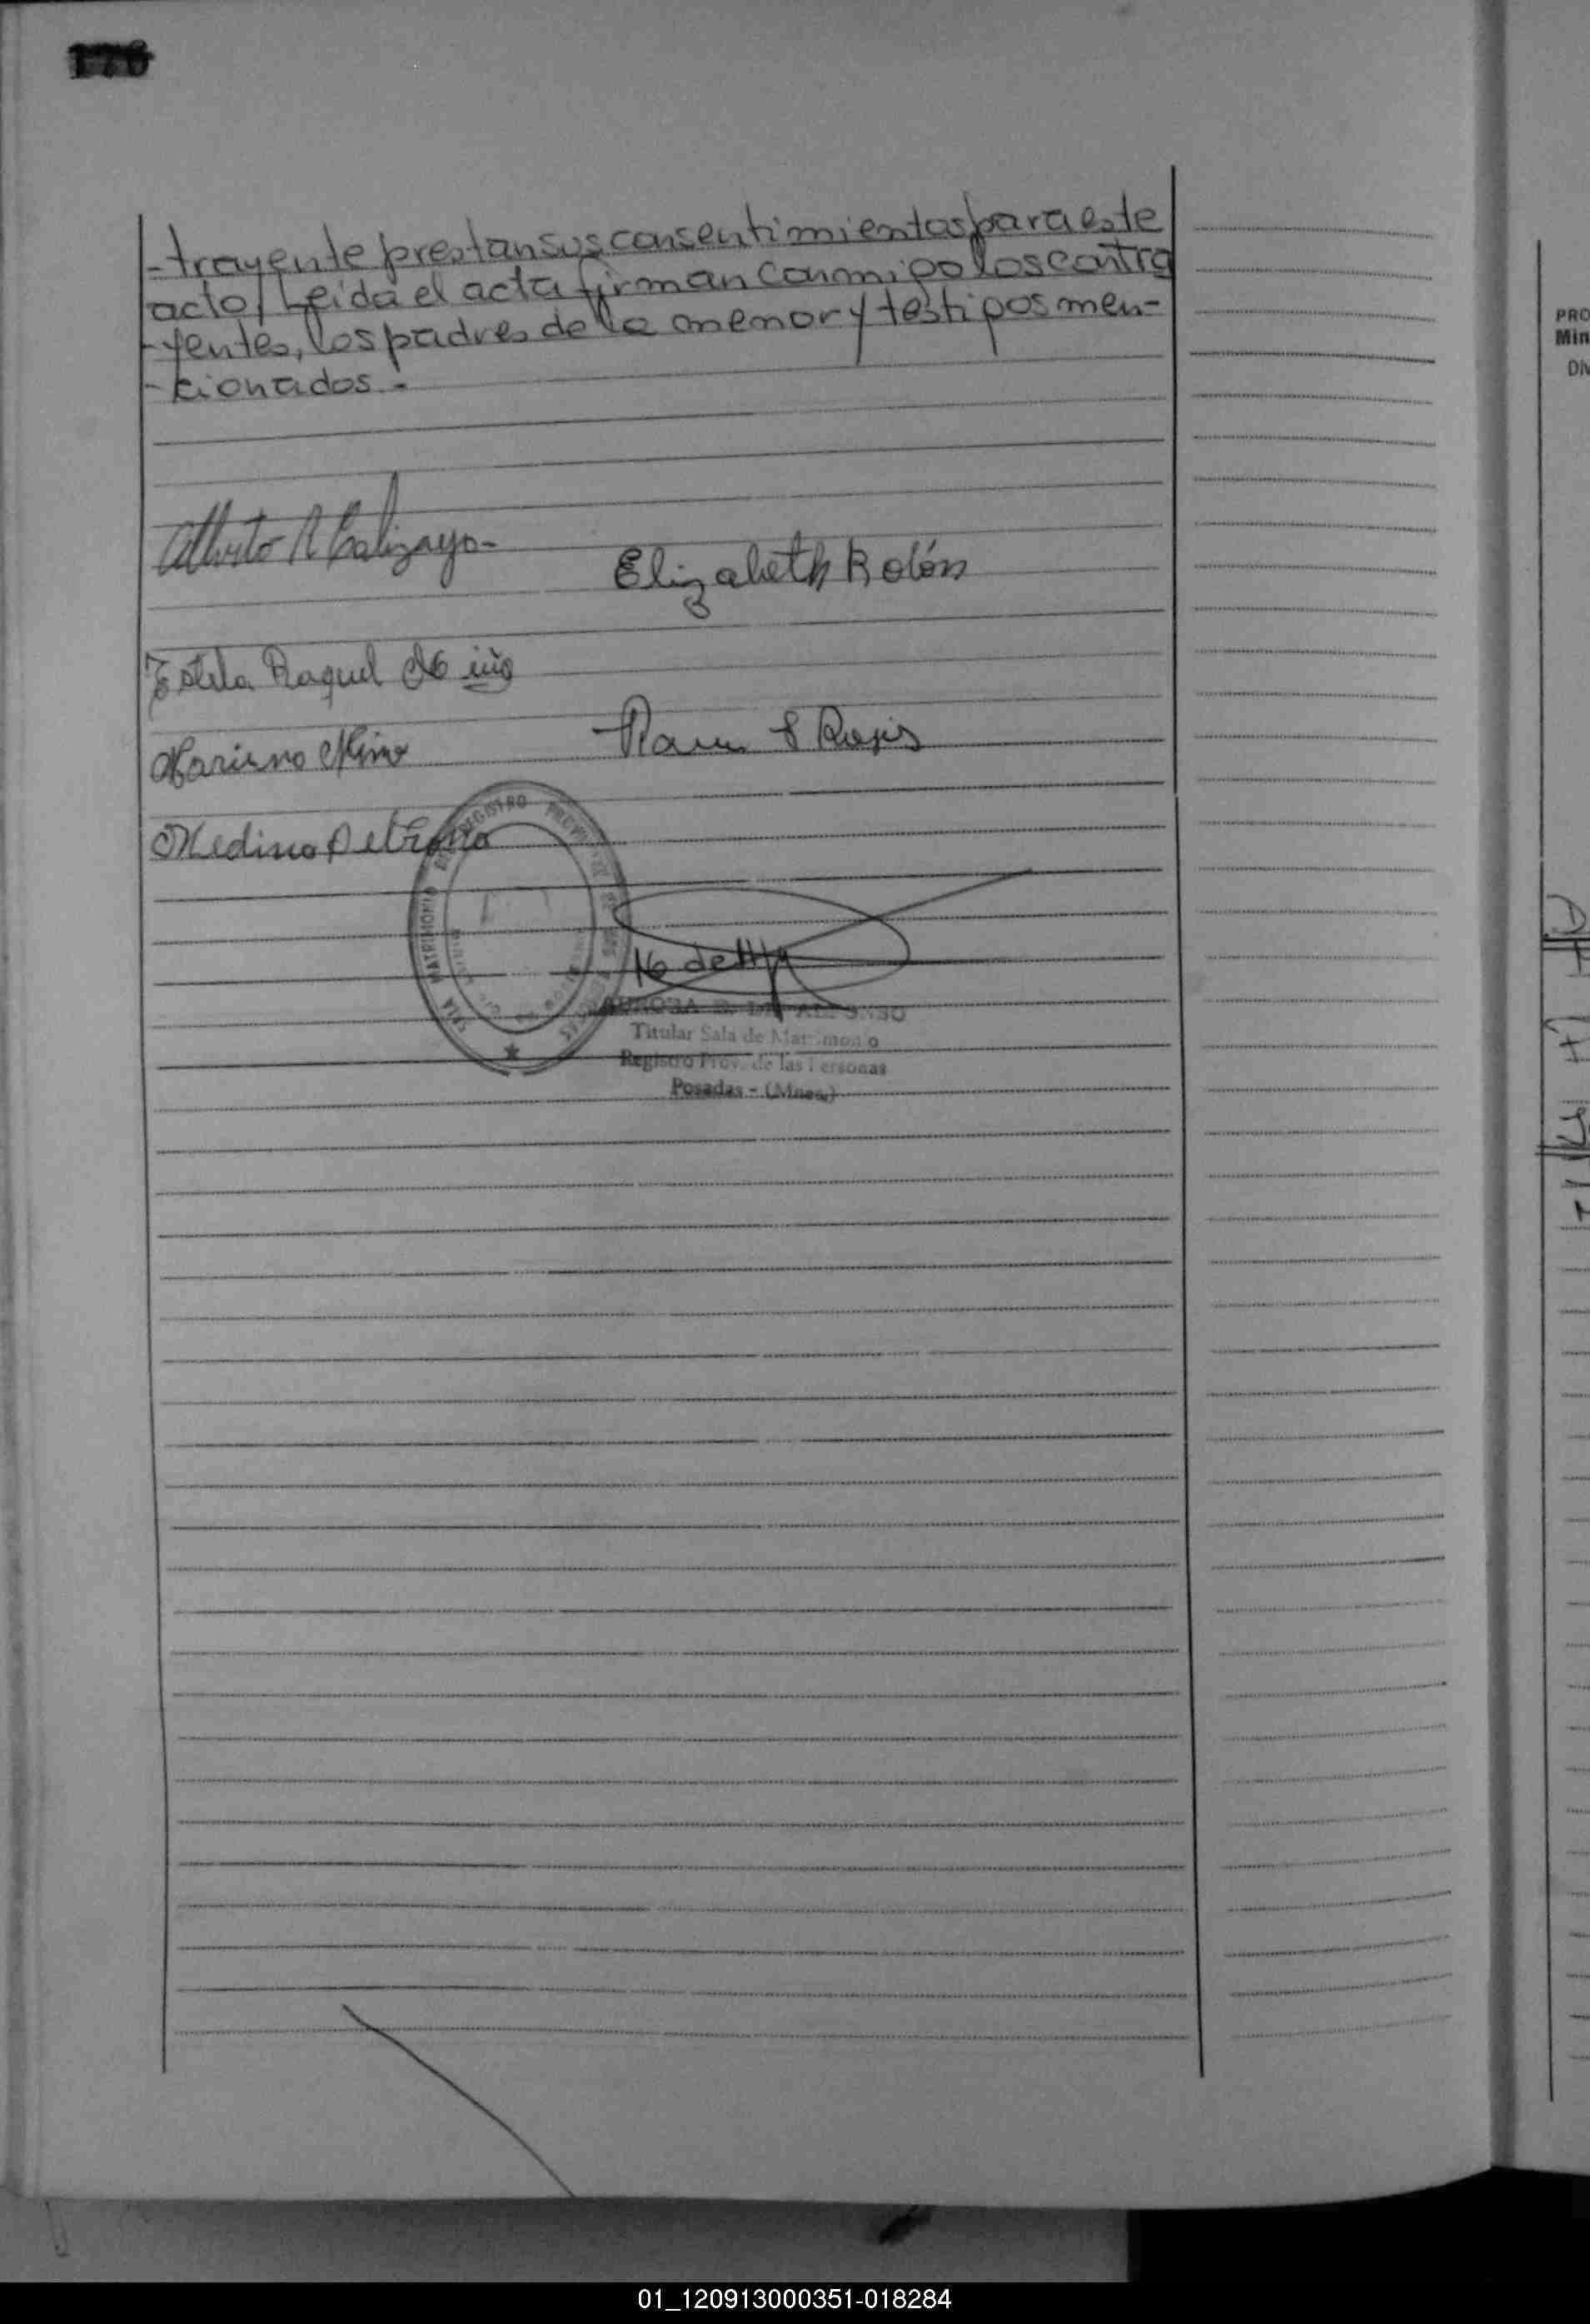 176
-trayente prestan sus consentimientos para este
acto, Leida el acta firman conmigo los contra
-yentes, los padres de la menor y testigos men-
-cionados.-
Alberto R
Elizabeth Rolón
Estela Raquel Niño
Mariano Niño
Ramon
Medina Petrona
SALA MATRIMONIO REGISTRO PROVINCIAL DE LAS PERSONAS
AURORA
Titular Sala de Matrimonio
Registro Prov. de las Personas
Posadas - (Mnes.)
PRO
Min
Div
01_120913000351-018284